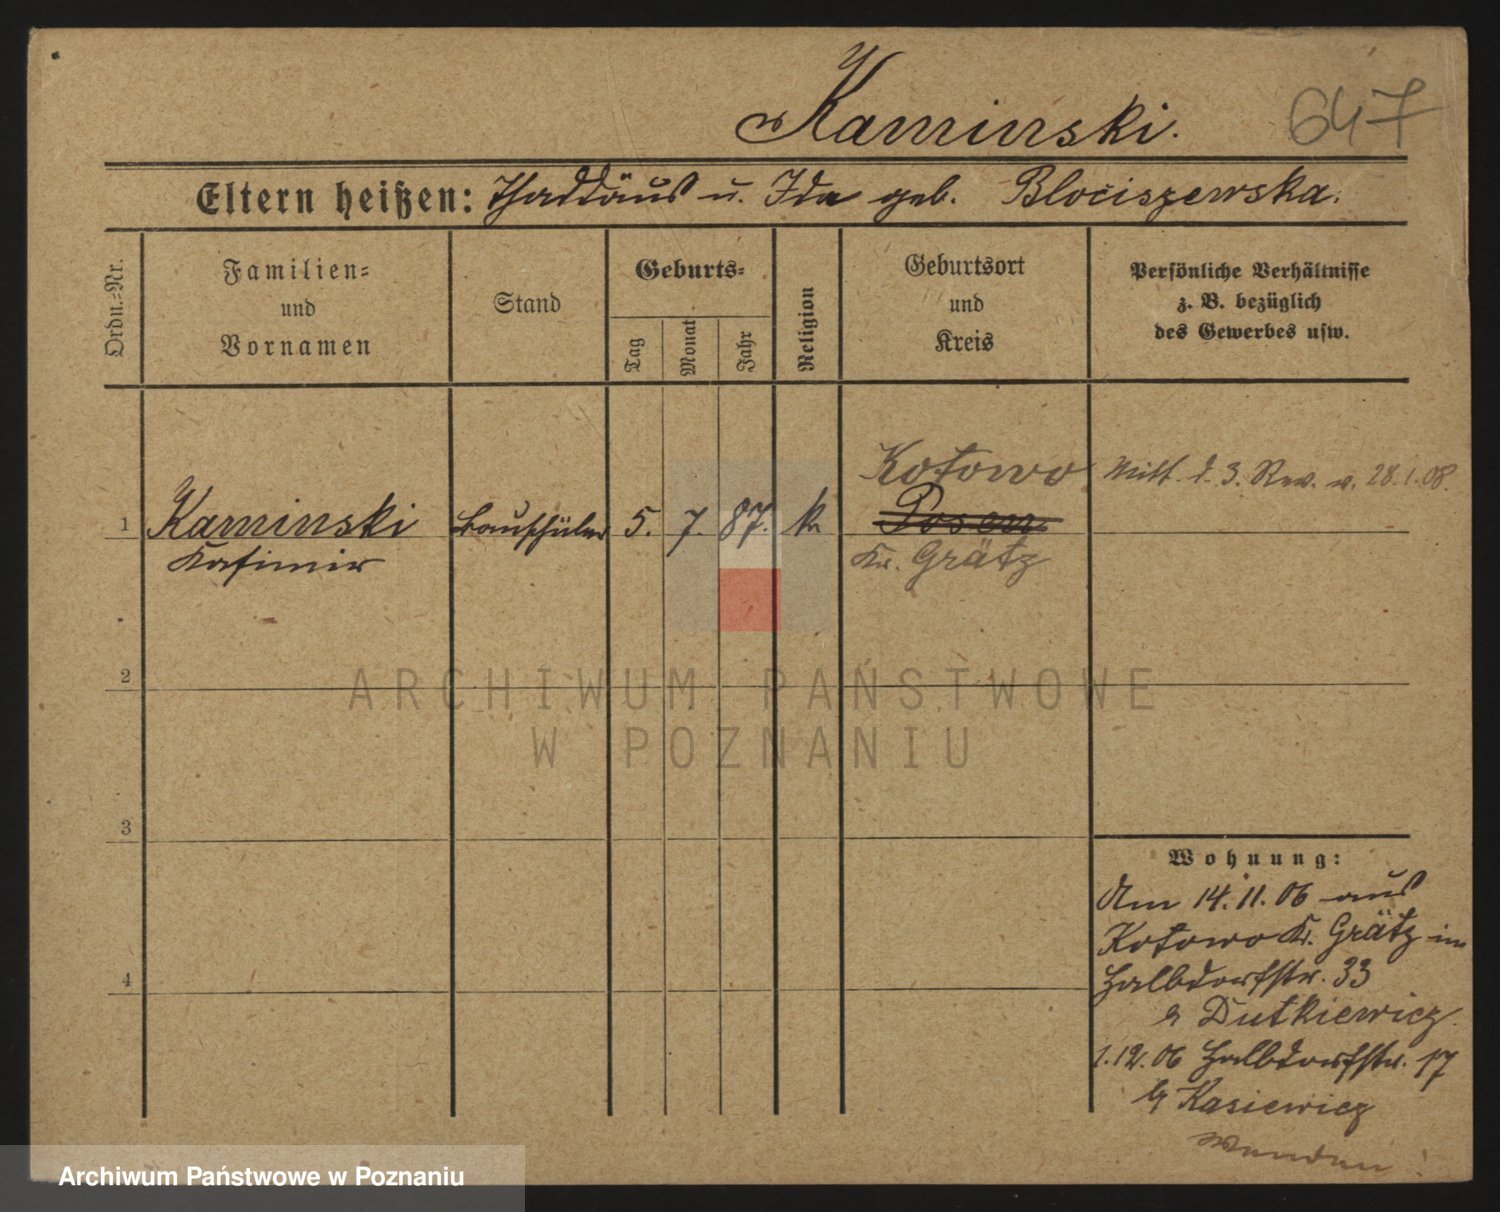 Kaminski.
647
Eltern heißen: Thaddäus u. Ida geb. Blociszewska.
Ordn.=Nr.
Familien=
und
Vornamen
Stand
Geburts=
Tag
Monat
Jahr
Religion
Geburtsort
und
Kreis
Persönliche Verhältnisse
z. B. bezüglich
des Gewerbes usw.
Kotowo
Mitt. d. 3. Rev. v. 28.1.08.
1 Kaminski Bauschüler 5. 7. 87. k. Posen
Kasimir
Kr. Grätz
2
ARCHIWUM PAŃSTWOWE
W POZNANIU
3
Wohnung:
Am 14.11.06 aus
Kotowo Kr. Grätz in
4
Halbdorfstr. 33
Dutkiewicz.
1.12.06 Halbdorfstr. 17
b/ Kasiewicz
Wenden!
Archiwum Państwowe w Poznaniu